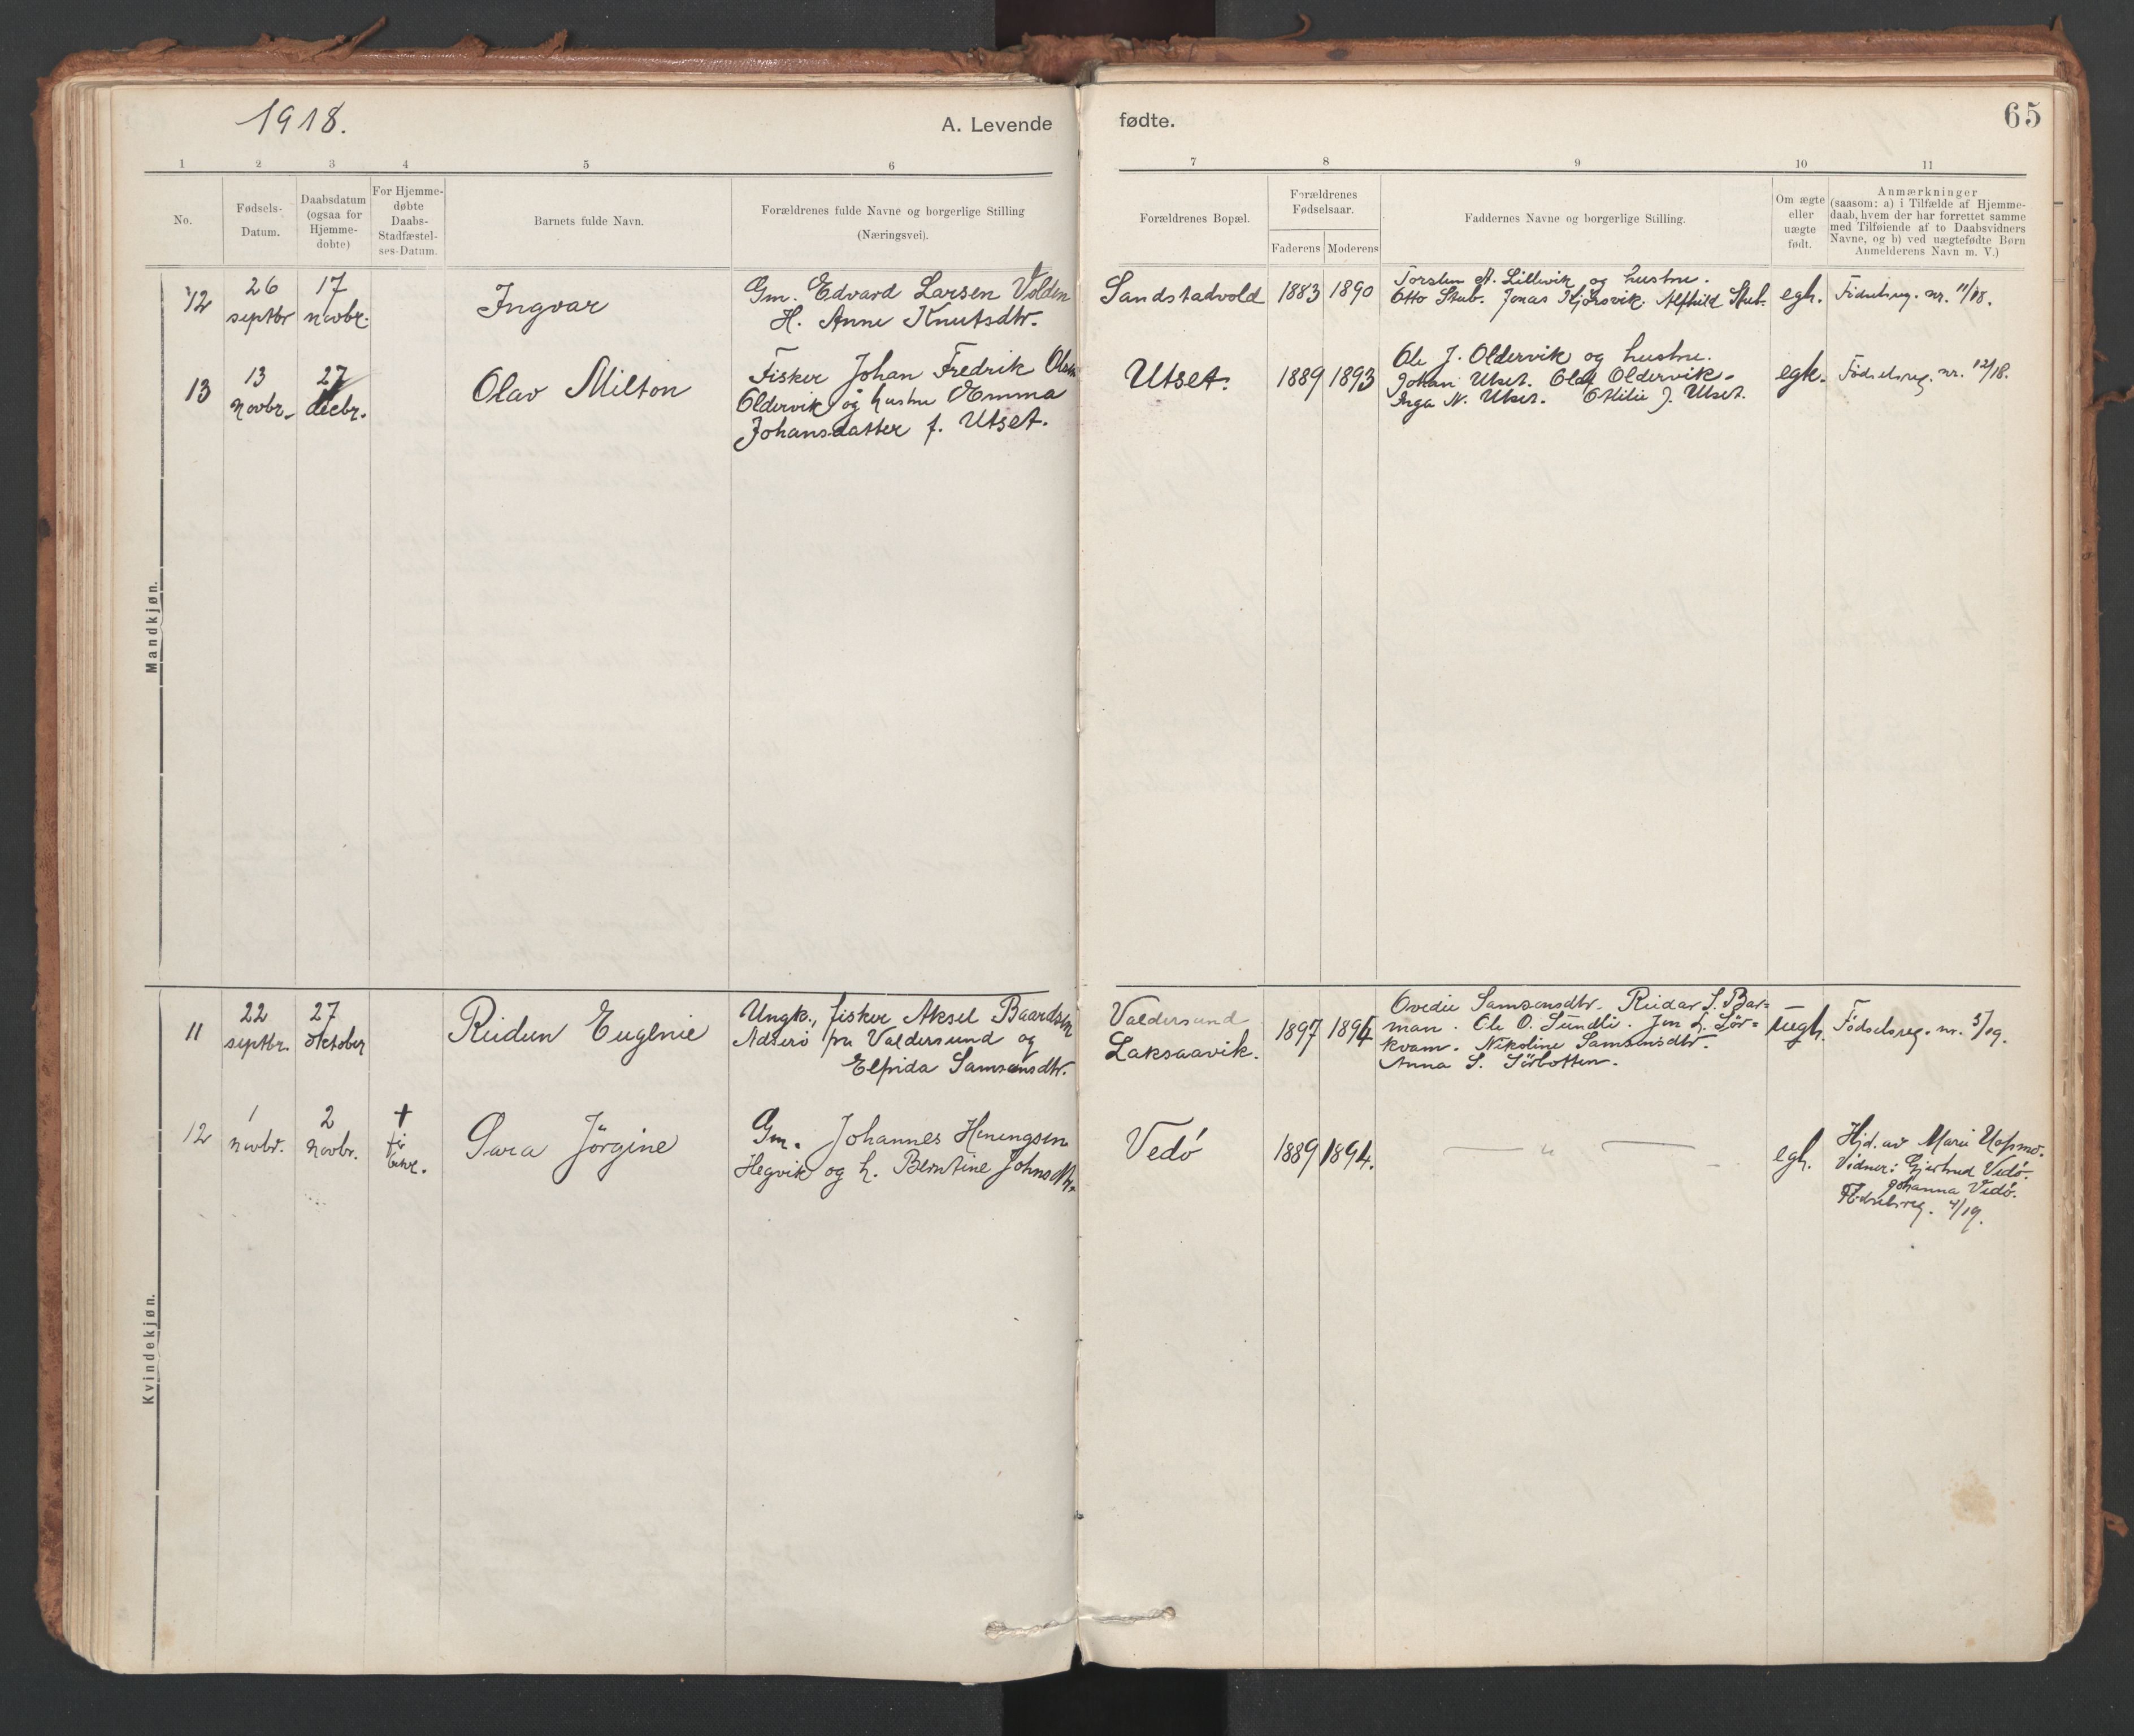 1918.
A. Levende
fødte.
65
1 2 3 4 5 6 7 8 9 10 11
No.
Fødsels-
Datum.
Daabsdatum
(ogsaa for
Hjemme-
døbte)
For Hjemme-
døbte
Daabs-
Stadfæstel-
ses-Datum.
Barnets fulde Navn.
Forældrenes fulde Navne og borgerlige Stilling
(Næringsvei).
Forældrenes Bopæl.
Forældrenes
Fødselsaar.
Faderens Moderens
Faddernes Navne og borgerlige Stilling.
Om ægte
eller
uægte
født.
Anmærkninger
(saasom: a) i Tilfælde af Hjemme-
daab, hvem der har forrettet samme
med Tilføiende af to Daabsvidners
Navne, og b) ved uægtefødte Børn
Anmelderens Navn m. V.)
Mandkjøn.
12
26
septbr
17
novbr.
Ingvar
Gm. Edvard Larsen Volden
H. Anne Knutsdtr.
Sandstadvold
1883 1890
Torsten A. Lillevik og hustru.
Otto Stub. Jonas Alfhild Stub.
egt.
Fødselsreg. nr. 11/18.
13
13
novbr.
27
decbr.
Olav Milton
Fisker Johan Fredrik Olsen
Oldervik og hustru Emma
Johansdatter f. Utset.
Utset.
1889 1893
Ole J. Oldervik og hustru.
Johan Utset. Olaf Oldervik.
Inga N. Utset. Otilie J. Utset.
egte.
Fødselsreg. nr. 12/18.
Kvindekjøn.
11
22
septbr.
27
oktober
Reidun Eugenie
Ungk., fisker Aksel Baardsen
Adserø fra Valdersund og
Elpida Samsonsdtr.
Valdersund
Laksaavik.
1897 1894
Ovedie Samsonsdtr. Reidar S. Bar=
man. Ole O. Sundli. Jon L. Sør=
kvam. Nikoline Samsonsdtr.
Anna S. Sørbotten.
uegt.
Fødselsreg. nr. 3/19.
12
1
novbr.
2
novbr.
†
Sara Jörgine
Gm. Johannes Heningsen
Hegvik og h. Berntine Johnsdtr.
Vedö
1889 1894.
— " —
egt.
Hjd. av Marie Uofsmo.
Vidner: Gjertrud Vedö.
Johanna Vedö.
Fødselsreg. 4/19.